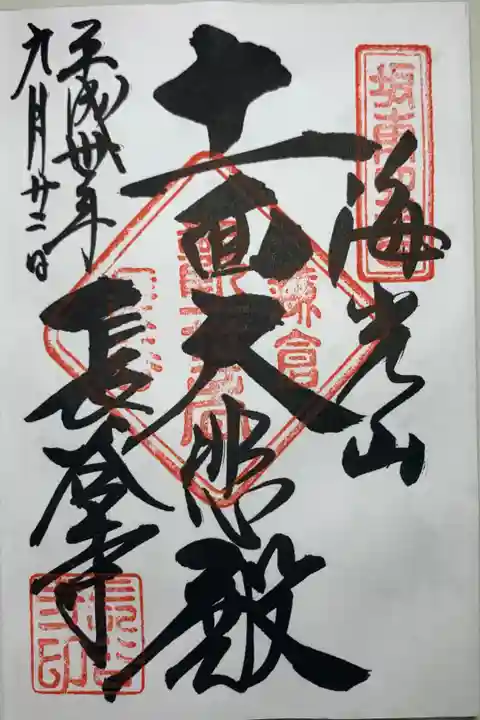 坂東
海光山
十一面大悲殿
鎌倉
長谷寺
平成卅年
九月廿二日
長谷寺印